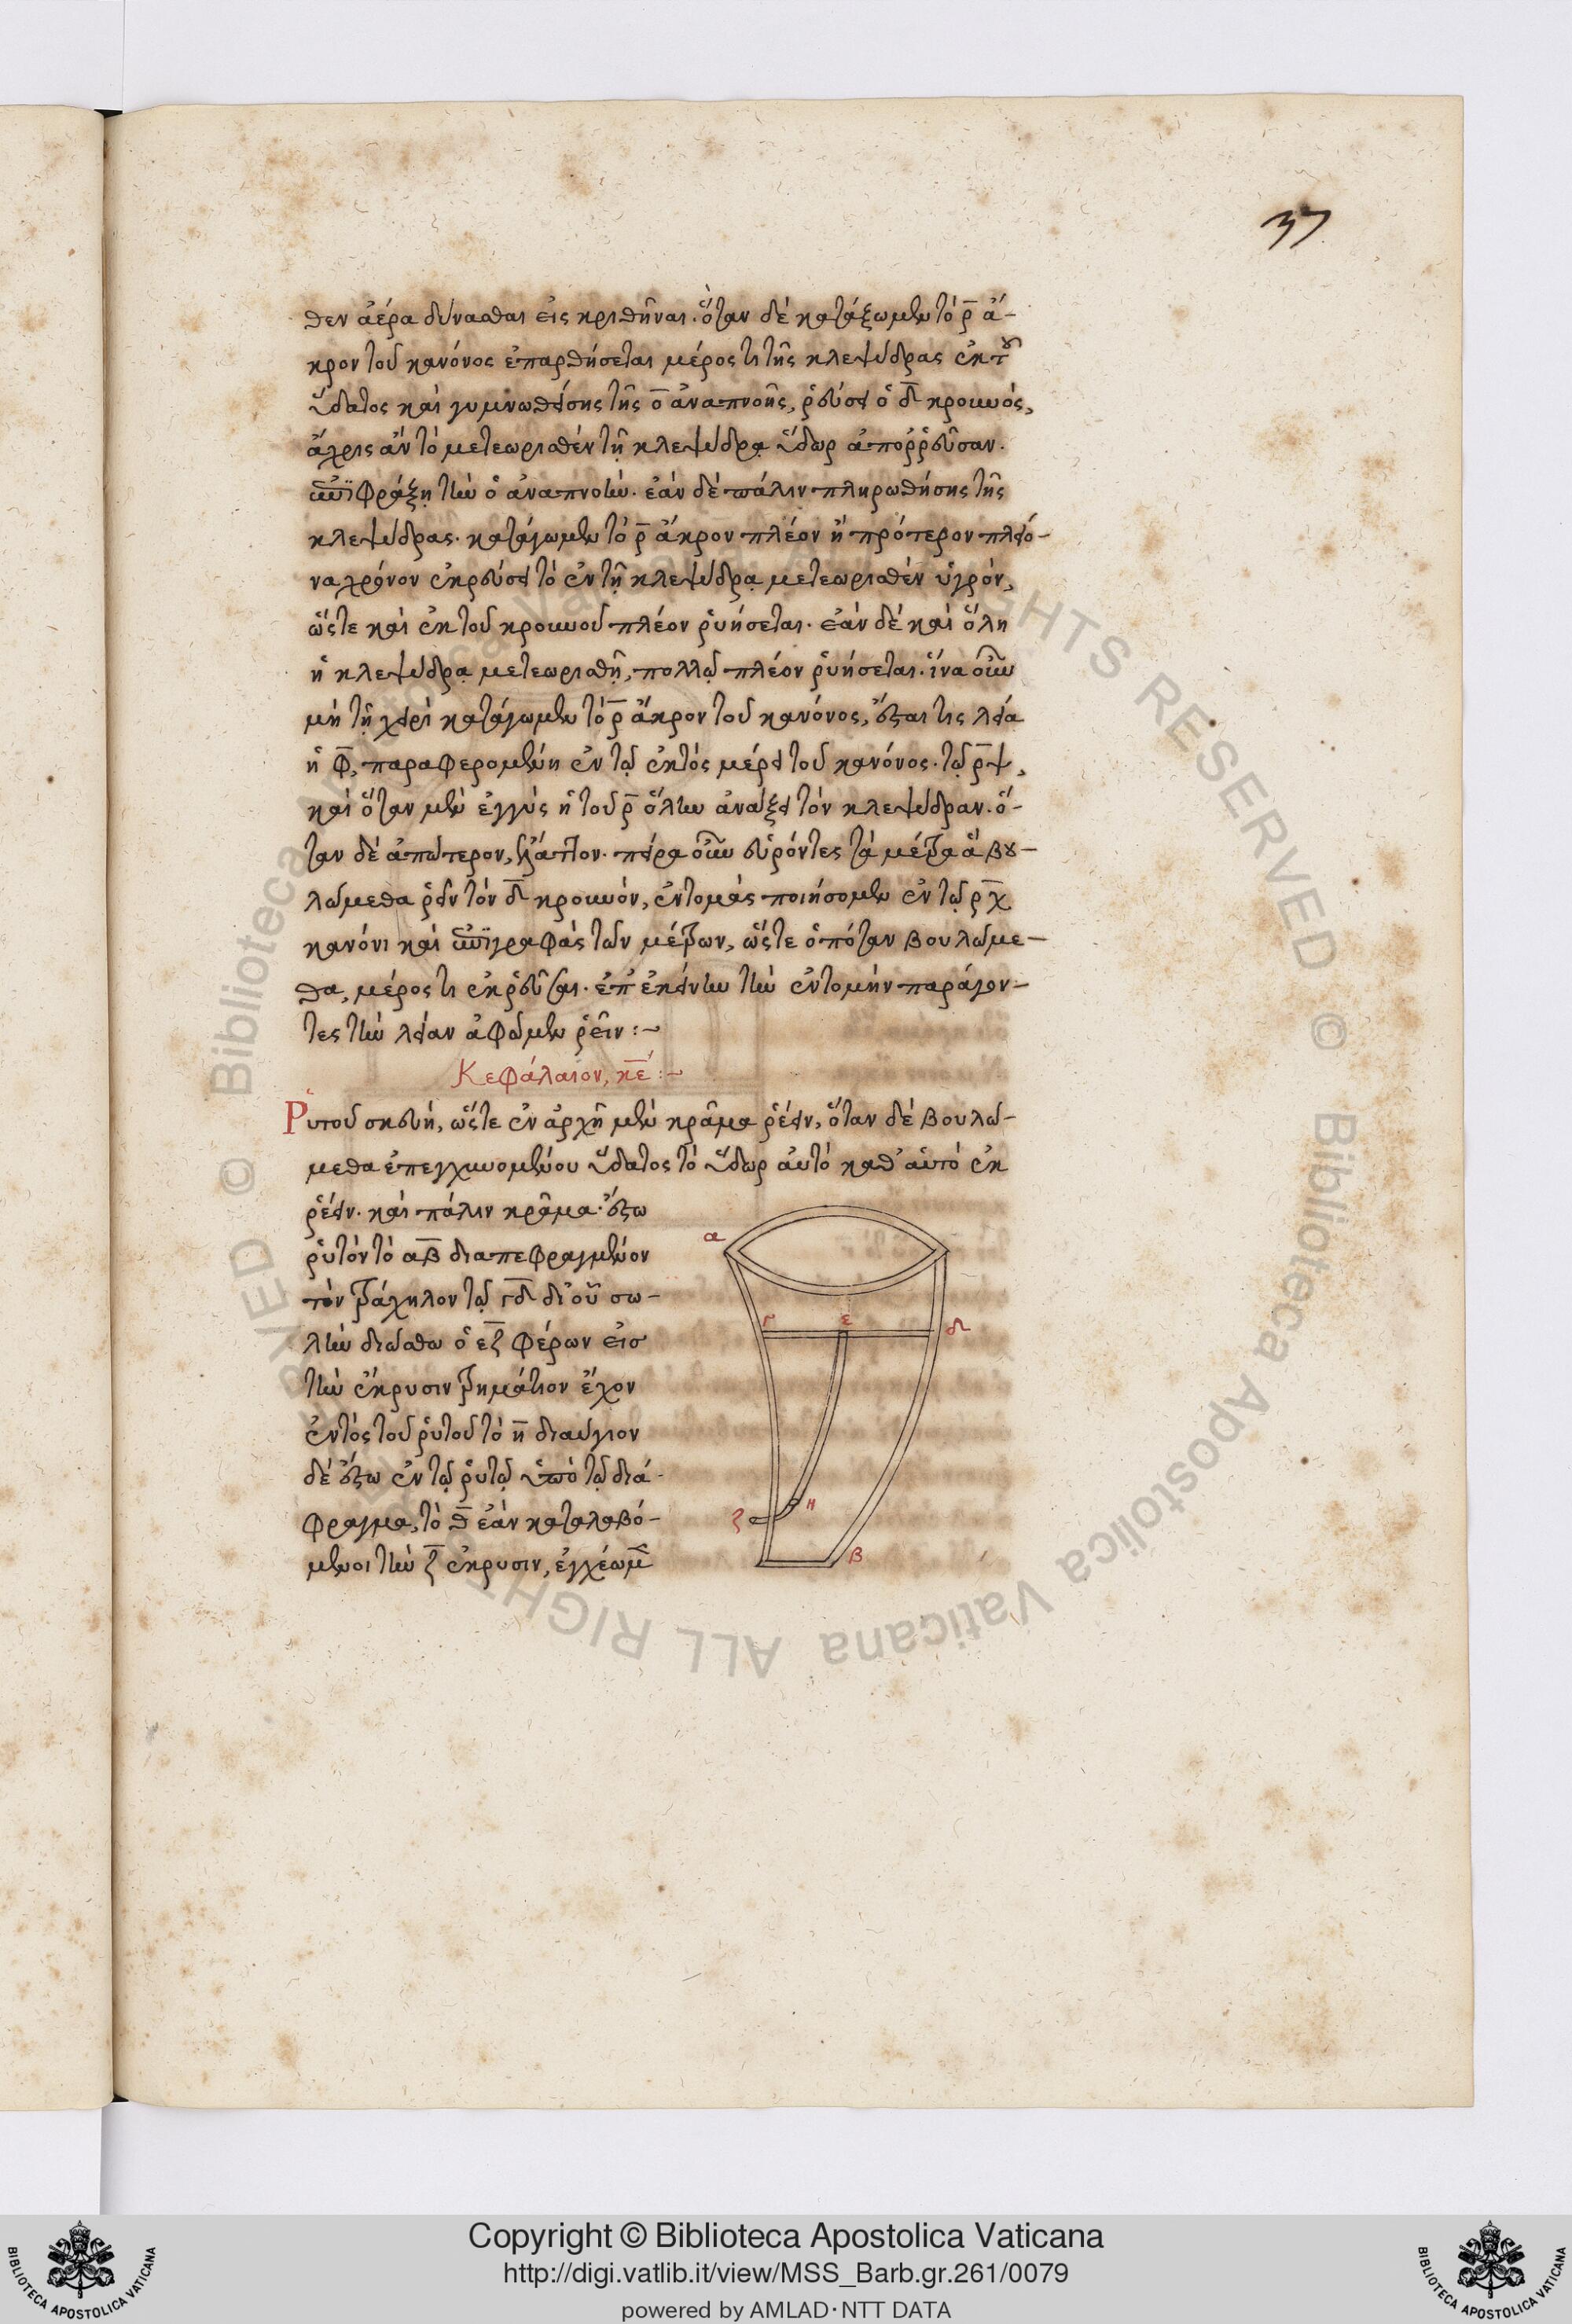 37
θεν ἀέρα δύνασθαι εἰς κριθῆναι. ὅταν δὲ κατάξωμεν τὸ ρ̅ ἄ-
κρον τοῦ κανόνος ἐπαρθήσεται μέρος τι τῆς κλεψύδρας ἐκ τοῦ
ὕδατος καὶ γυμνωθείσης τῆς ο̅ ἀναπνοῆς, ῥεύσει ὁ δ̅ κρουνός,
ἄχρις ἂν τὸ μετεωρισθὲν τῇ κλεψύδρᾳ ὕδωρ ἀπορρεῦσαν.
ἐπιφράξῃ τὴν ὁ ἀναπνοὴν. ἐὰν δὲ πάλιν πληρωθήσης τῆς
κλεψύδρας. κατάγωμεν τὸ ρ̅ ἄκρον πλέον ἢ πρότερον πλείο-
να χρόνον ἐκρεύσει τὸ ἐν τῇ κλεψύδρᾳ μετεωρισθὲν ὑγρόν,
ὥστε καὶ ἐκ τοῦ κρουνοῦ πλέον ῥυήσεται. ἐὰν δὲ καὶ ὅλη
ἡ κλεψύδρᾳ μετεωρισθῇ, πολλῷ πλέον ῥυήσεται. ἵνα οὖν
μὴ τῇ χειρὶ κατάγωμεν τὸ ρ̅ ἄκρον τοῦ κανόνος, ἔσται τις λεία
ἡ φ̅, παραφερομένη ἐν τῷ ἐκτὸς μέρει τοῦ κανόνος. τῷ ρ̅ψ,
καὶ ὅταν μὲν ἐγγὺς ἢ τοῦ ρ̅ ὅλην ἀνάξει τὸν κλεψύδραν. ὅ-
ταν δὲ ἀπώτερον, ἔλαττον. πείρα οὖν εὑρόντες τὰ μέτρα ἃ βου-
λώμεθα ῥεῖν τὸν δ̅ κρουνόν, ἐντομὰς ποιήσομεν ἐν τῷ ρ̅χ
κανόνι καὶ ἐπιγραφὰς τῶν μέτρων, ὥστε ὁπόταν βουλώμε-
θα, μέρος τι ἐκρεῦσαι. ἐπ' ἐκείνην τὴν ἐντομὴν παράγον-
τες τὴν λείαν ἀφῶμεν ῥεῖν :~
Κεφάλαιον, κ̅ε̅ :~
Ῥυτοῦ σκευή, ὥστε ἐν ἀρχῇ μὲν κρᾶμα ῥέειν, ὅταν δὲ βουλώ-
μεθα ἐπεγχυνομένου ὕδατος τὸ ὕδωρ αὐτὸ καθ' αὑτὸ ἐκ
ῥέειν. καὶ πάλιν κρᾶμα. ἔστω
ῥυτὸν τὸ αβ̅ διαπεφραγμένον
τὸν τράχηλον τῷ γδ̅ δι' οὗ σω-
λὴν διώσθω ὁ εζ̅ φέρων εἰσ
τὴν ἔκρυσιν τρημάτιον ἔχον
ἐντὸς τοῦ ῥυτοῦ τὸ η̅ διαύγιον
δὲ ἔστω ἐν τῷ ῥυτῷ ὑπὸ τῷ διά-
φραγμα, τὸ θ̅ ἐὰν καταλαβό-
μενοι τὴν ζ̅ ἔκρυσιν, ἐγχέωμ̅
α
γ ε δ
ζ η
β
Copyright © Biblioteca Apostolica Vaticana
http://digi.vatlib.it/view/MSS_Barb.gr.261/0079
powered by AMLAD·NTT DATA
BIBLIOTECA APOSTOLICA VATICANA
BIBLIOTECA APOSTOLICA VATICANA